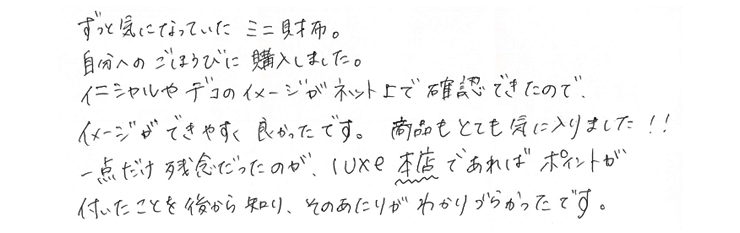 ずっと気になっていた ミニ財布。
自分への ごほうびに 購入しました。
イニシャルや デコのイメージが ネット上で 確認 できたので、
イメージが できやすく 良かったです。 商品もとても 気に入りました!!
一点だけ 残念だったのが、luxe 本店 であれば ポイントが
付いたことを 後から 知り、そのあたりが わかりづらかったです。